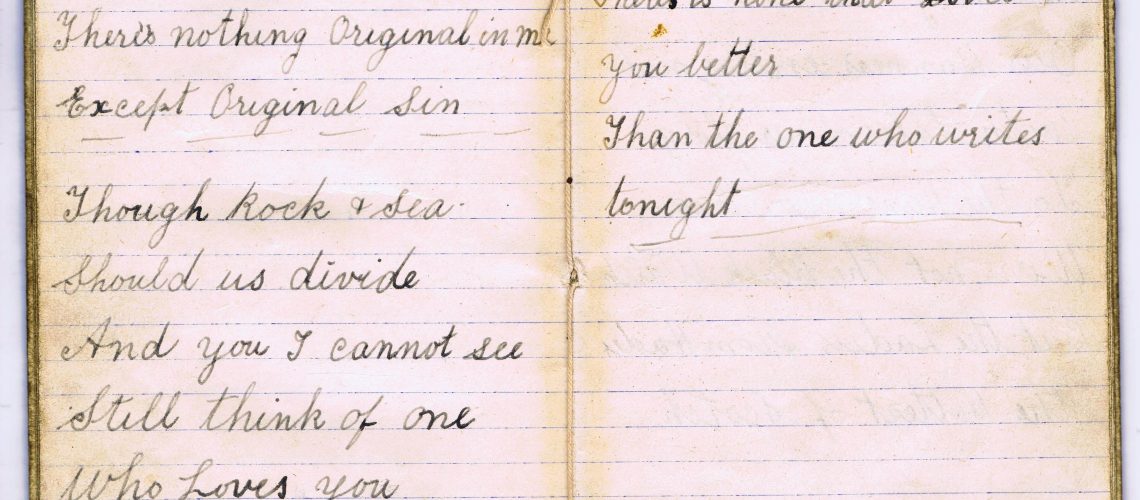 There's nothing Original in me
Except Original Sin
Though Rock & Sea
Should us divide
And you I cannot see
Still think of one
Who Loves you
There's is none that Loves
you better
Than the one who writes
tonight